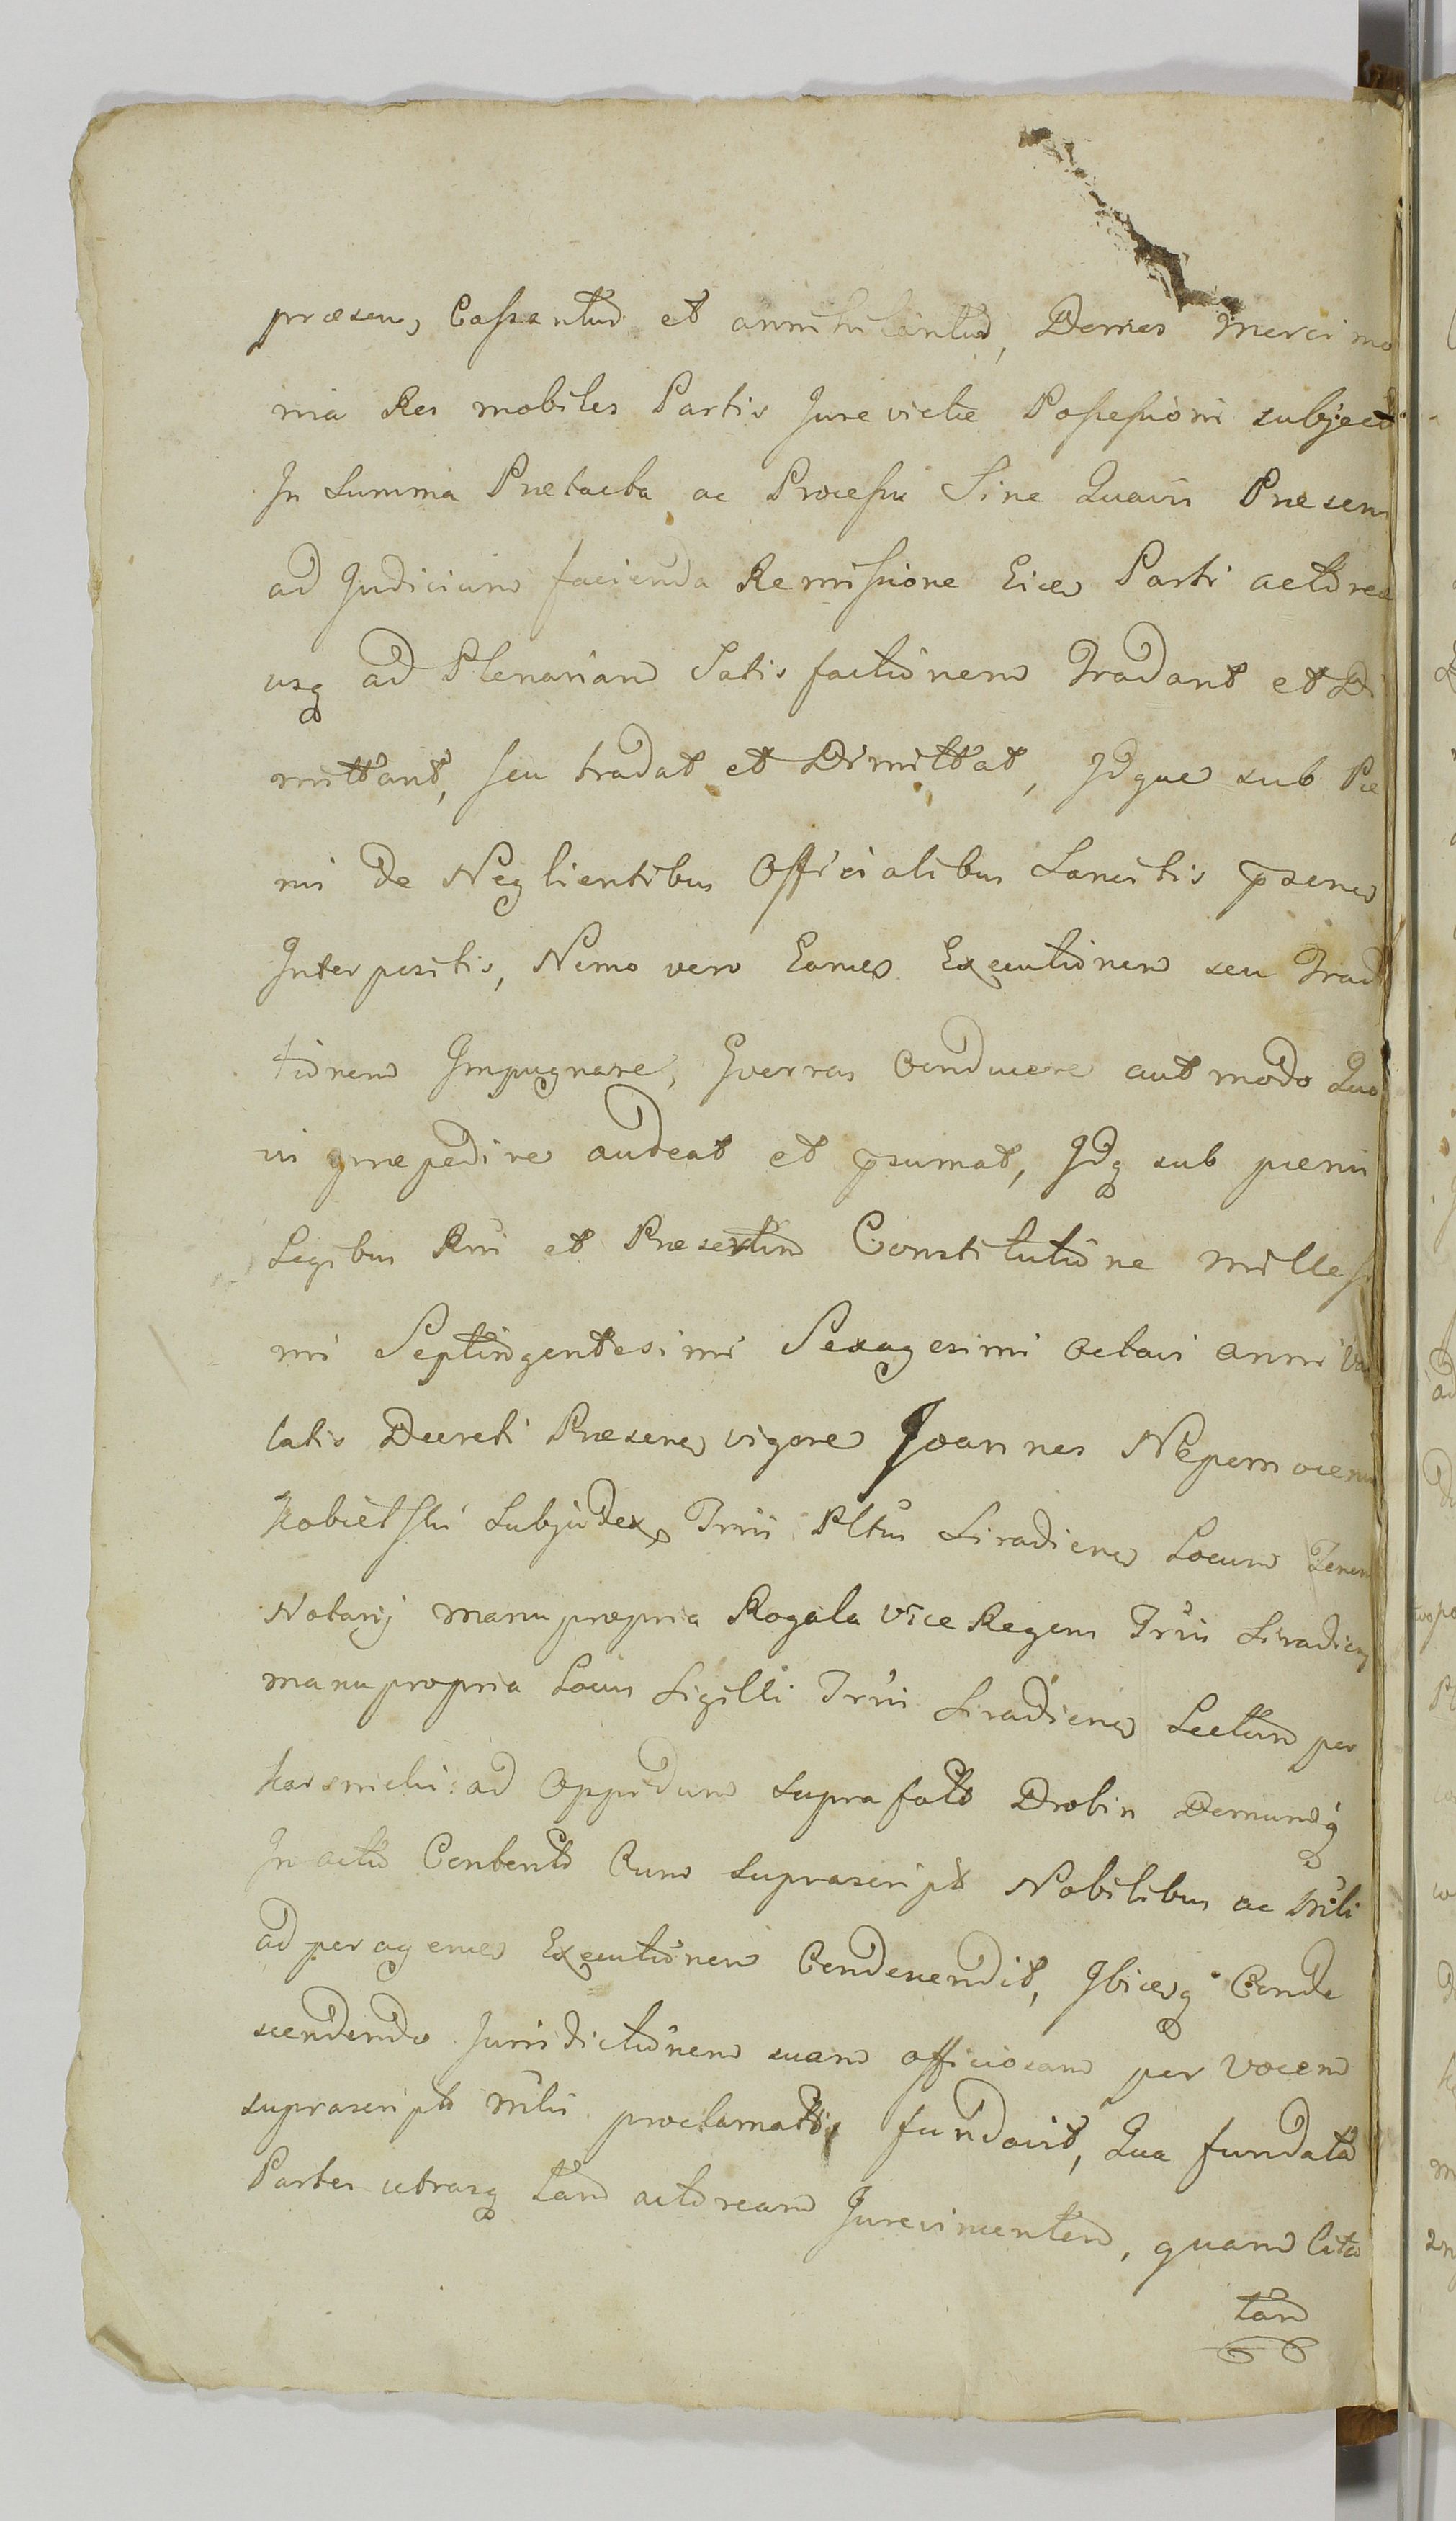 præsen, Cassantur et annihilantur, Domos Mercimo
nia Res mobiles Partis Jurevictæ Possessioni subject
In Summa Prætacta ac Processu Sine Quavis Præsen
ad Judicium facienda Remissione Eidem Parti actoreæ
usq ad Plenariam Satisfactionem Tradant et Di
mittant, seu tradat et Dimittat, Idque sub Pæ
nis De Neglientibus Officialibus Sancitis præsen
Interpositis, Nemo vero Eandem Executionem seu Tradi
tionem Impugnare, Guerras Conducere aut modo Quo
vis impedire audeat et præsumat, Idq sub pænis
Legibus Rni et Præsertim Constitutione millesi
mi Septingentesimi Sexagesimi Octavi anni
latis Decreti Præsen vigore Joannes Nepomocenus
Kobielski Subjudex Trris Pltus Siradien Locum Tenens
Notarij manu propria Rogala Vice Regens Trris Siradien
manu propria Locus Sigilli Trris Siradien Lectum per
Karsnicki: ad Oppidum suprafato Drobin Demumq
In actu Contento Cum suprascript Nobilibus ac Mrli
ad peragen Executionem Condescendit, Ibidemq Conde
scendendo Jurisdictionem suam officiosam per Vocem
suprascript Mrlis proclamato fundavit, Qua fundata
Partes utrasq tam actoream Jurevincentem, quam Cita
tam